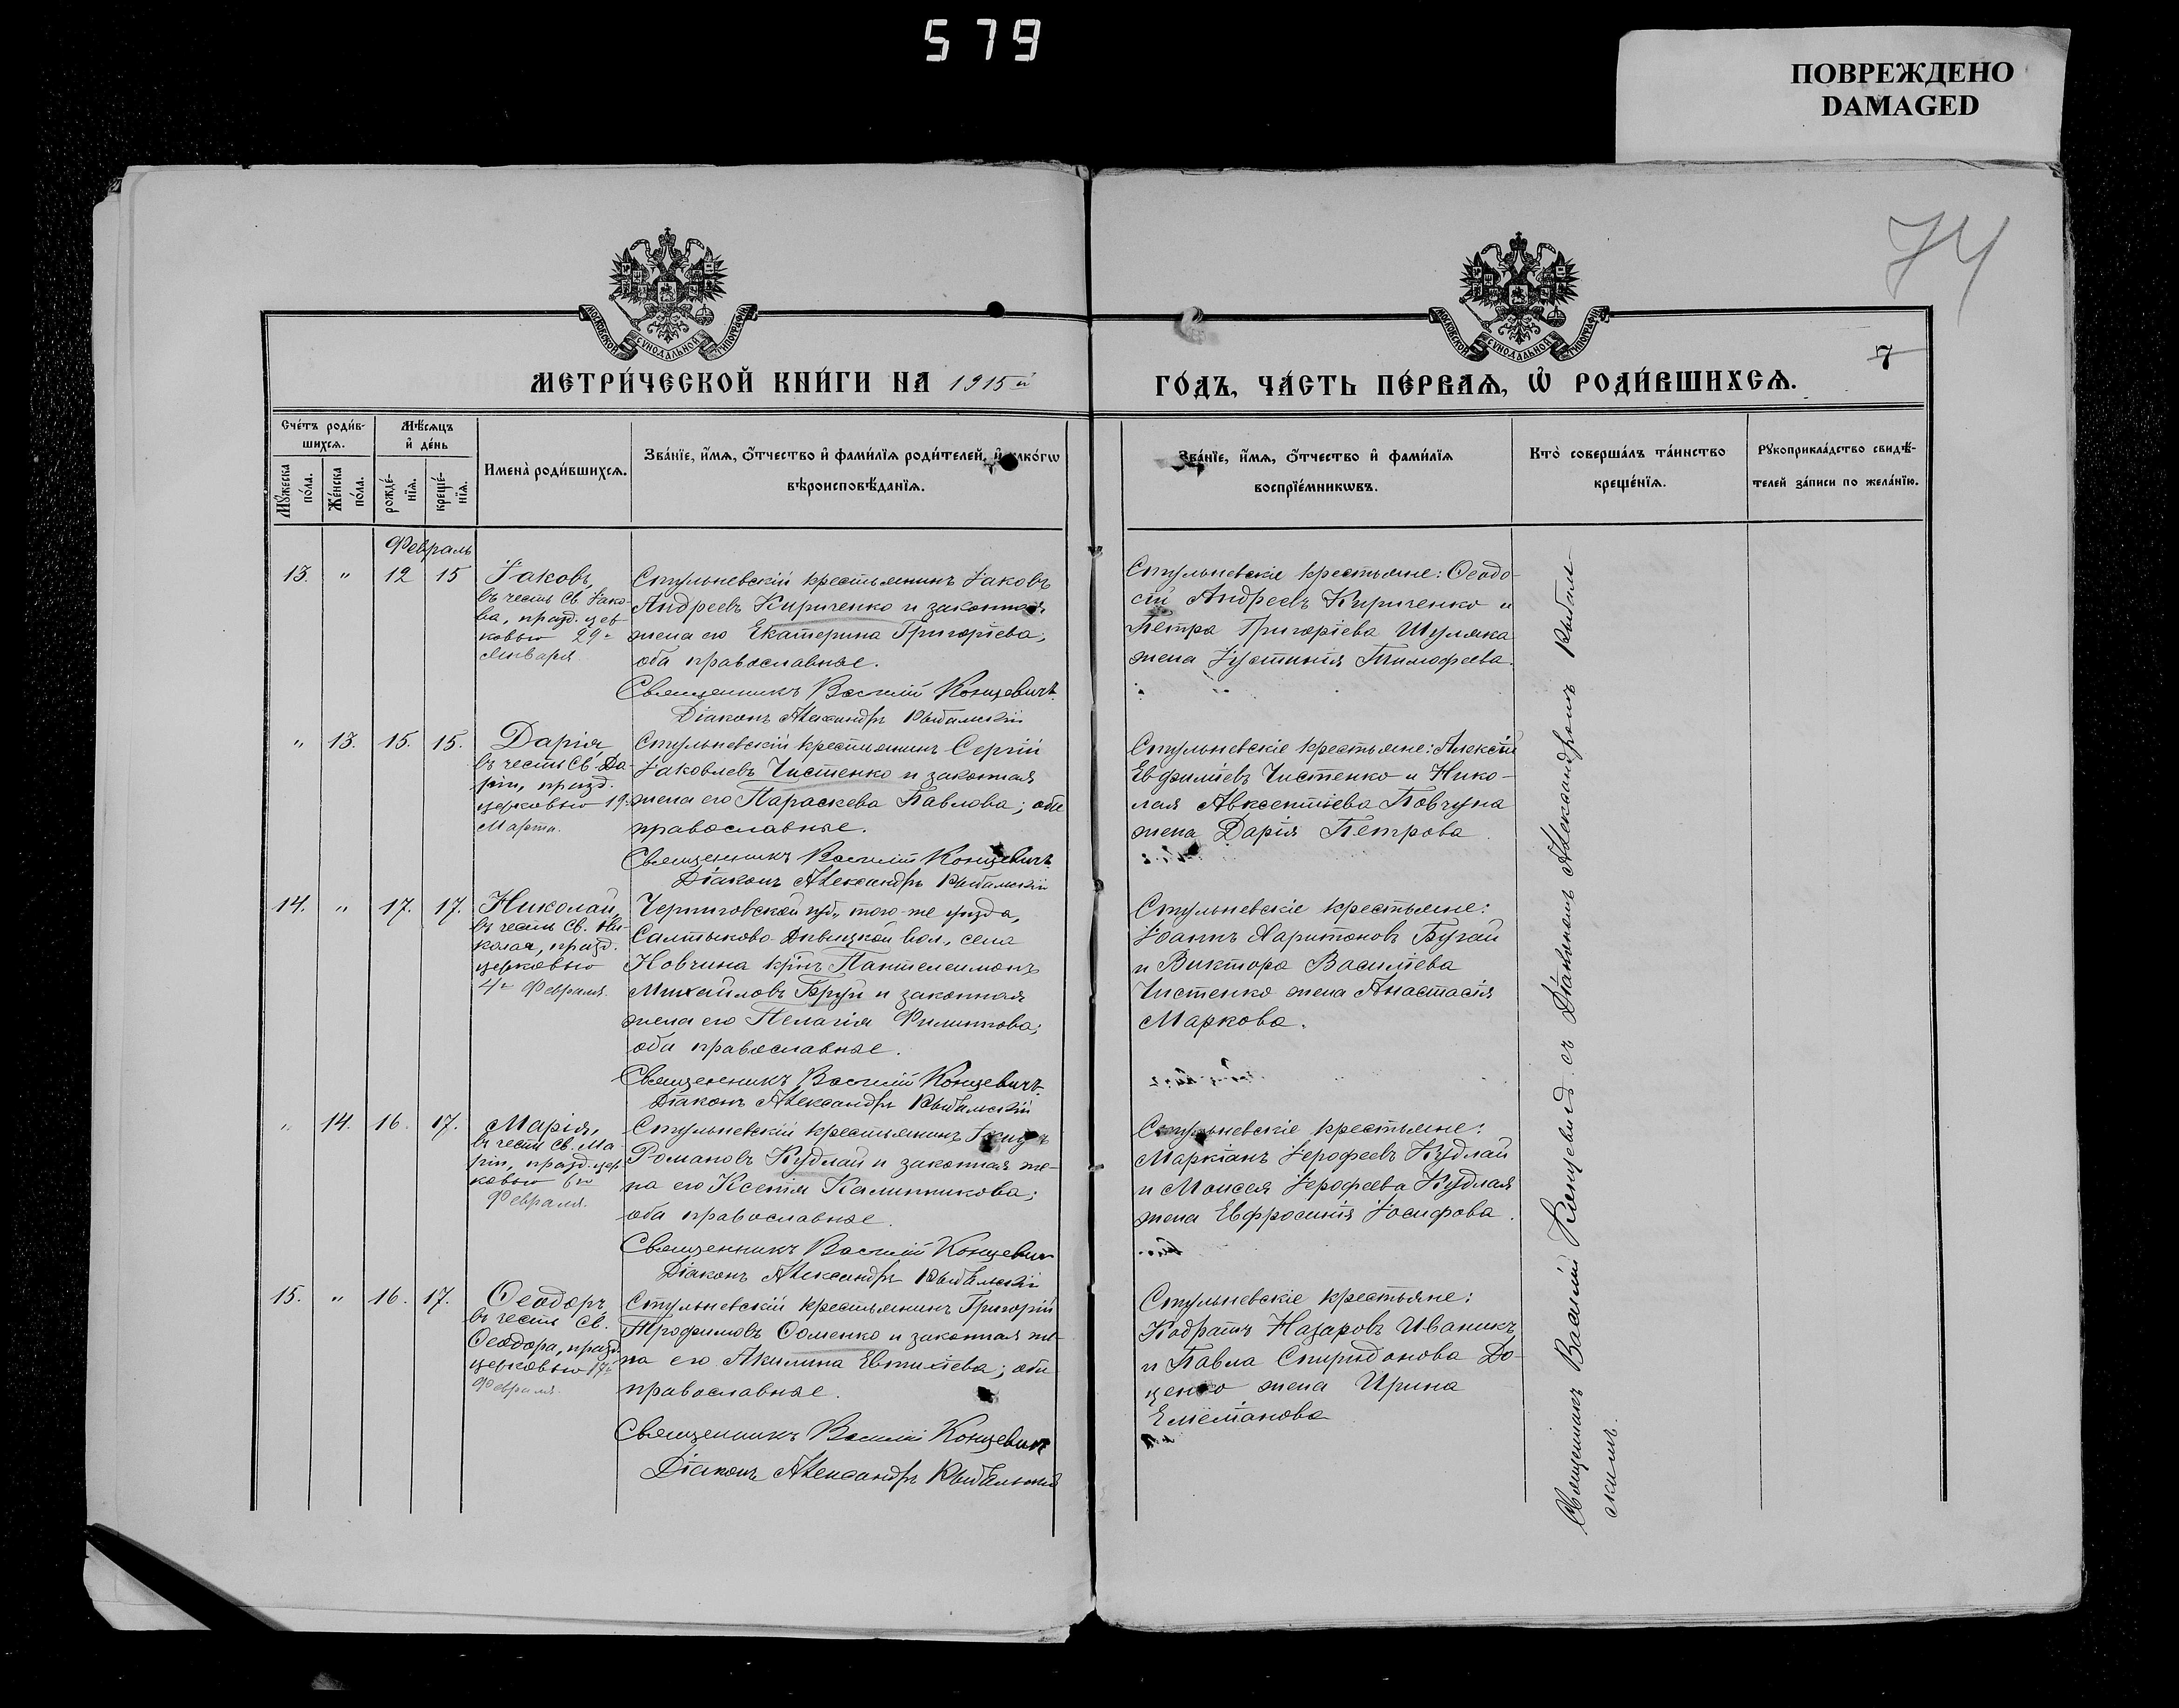 579
ПОВРЕЖДЕНО
DAMAGED
74
МОСКОВСКОЙ СѴНОДАЛЬНОЙ ТИПОГРАФІИ
МОСКОВСКОЙ СѴНОДАЛЬНОЙ ТИПОГРАФІИ
7
МЕТРИ́ЧЕСКОЙ КНИ́ГИ НА 1915й
ГО́ДЪ, ЧА́СТЬ ПЕ́РВАѦ, Ѡ҆ РОДИ́ВШИХСѦ.
Сче́тъ роди́в-
шихсѧ.
Мѣ́сѧцъ
и҆ де́нь
Мꙋ́жеска
по́ла.
Же́нска
по́ла.
рожде́-
нїѧ.
креще́-
нїѧ.
Имена̀ роди́вшихсѧ.
Зва́нїе, и҆́мѧ, ѻ҆́тчество и҆ фами́лїѧ роди́телей, и҆ како́гѡ
вѣроисповѣ́данїѧ.
Зва́нїе, и҆́мѧ, ѻ҆́тчество и҆ фами́лїѧ
воспрїе́мникѡвъ.
Кто̀ соверша́лъ та́инство
креще́нїѧ.
Рꙋкоприкла́дство свидѣ́-
телей за́писи по жела́нїю.
Февраль
13. " 12 15 Іаковъ,
въ честь Св. Іако-
ва, празд. цер-
ковью 29го
Января.
Стульневскій крестьянинъ Іаковъ
Андреевъ Кириченко и законная
жена его Екатерина Григоріева,
оба православные.
Священникъ Василій Концевичъ
Діаконъ Александръ Рыбальскій
Стульневскіе крестьяне: Ѳеодо-
сій Андреевъ Кириченко и
Петра Григоріева Шуляка
жена Іустинія Тимофеева.
" 13. 15. 15. Дарія
въ честь Св. Да-
ріи, празд.
церковью 19
Марта.
Стульневскій крестьянинъ Сергій
Іаковлевъ Чистенко и законная
жена его Параскева Павлова; оба
православные.
Священникъ Василій Концевичъ
Діаконъ Александръ Рыбальскій
Стульневскіе крестьяне: Алексій
Евфиміевъ Чистенко и Нико-
лая Авксентіева Повчуна
жена Дарія Петрова
14. " 17. 17. Николай,
въ честь Св. Ни-
колая, празд.
церковью
4го Февраля.
Черниговской губ., того-же уѣзда,
Салтыково-Дѣвицкой вол., села
Ковчина кр-нъ Пантелеимонъ
Михайловъ Бруй и законная
жена его Пелагія Филиппова;
оба православные.
Священникъ Василій Концевичъ
Діаконъ Александръ Рыбальскій
Стульневскіе крестьяне:
Іоаннъ Харитоновъ Бугай
и Виктора Василіева
Чистенко жена Анастасія
Маркова.
" 14. 16. 17. Марія,
въ честь Св. Ма
ріи, празд. цер
ковью 6го
Февраля.
Стульневскій крестьянинъ
Романовъ Кудлай и законная же-
на его Ксенія Калинникова;
оба православные.
Священникъ Василій Концевичъ
Діаконъ Александръ Рыбальскій
Стульневскіе крестьяне:
Маркіанъ Іерофеевъ Кудлай
и Моисея Іерофеева Кудлая
жена Евфросинія Іосифова.
15. " 16. 17. Ѳеодоръ,
въ честь Св.
Ѳеодора, празд.
церковью 17го
Февраля.
Стульневскій крестьянинъ Григорій
Трофимовъ Фоменко и законная же-
на его Акилина Евтихіева; оба
православные.
Священникъ Василій Концевичъ
Діаконъ Александръ Рыбальскій
Стульневскіе крестьяне:
Кодратъ Назаровъ Иваникъ
и Павла Спиридонова До-
ценко жена Ирина
Емеліанова
Священникъ Василій Концевичъ съ Діакономъ Александромъ Рыбаль-
скимъ.